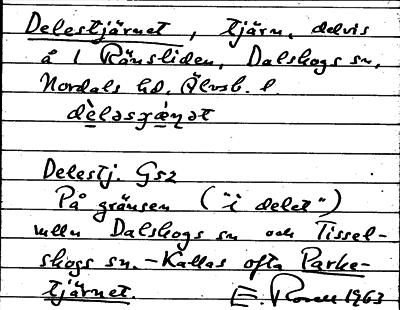 Delestjärnet, tjärn, delvis
å 1 Rånsliden, Dalskogs sn,
Nordals hd, Älvsb. l.
Delestj. Gs2
På gränsen ("i delet")
mellu Dalskogs sn och Tissel-
skogs sn. - Kallas ofta Parke-
tjärnet. E. 1963